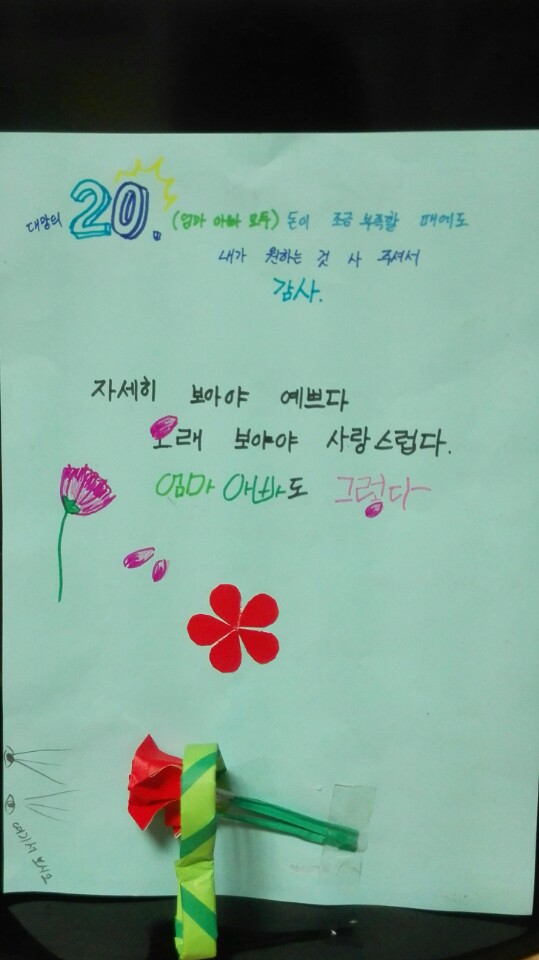 대망의 20. (엄마 아빠 모두) 돈이 조금 부족할 때에도
내가 원하는 것 사 주셔서
감사.
자세히 보아야 예쁘다
오래 보아야 사랑스럽다.
엄마 아빠도 그렇다
여기서 보시오